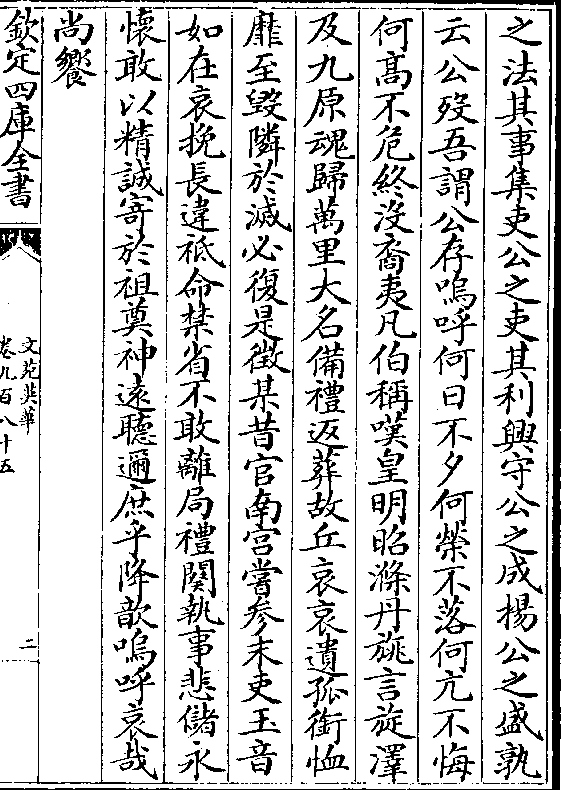 之法其事集吏公之吏其利興守公之成揚公之盛孰
云公歿吾謂公存嗚呼何日不夕何榮不落何亢不悔
何高不危終沒裔夷凡伯稱嘆皇明昭滌丹旐言旋澤
及九原魂歸萬里大名備禮返葬故丘哀哀遺孤銜恤
靡至毀隣於滅必復是徴某昔官南宫嘗參末吏玉音
如在哀挽長違祗命禁省不敢離局禮闋執事悲儲永
懐敢以精誠寄於祖奠神遠聽邇庶乎降歆嗚呼哀哉
尚饗
欽定四庫全書
文苑英華
卷九百八十五
二